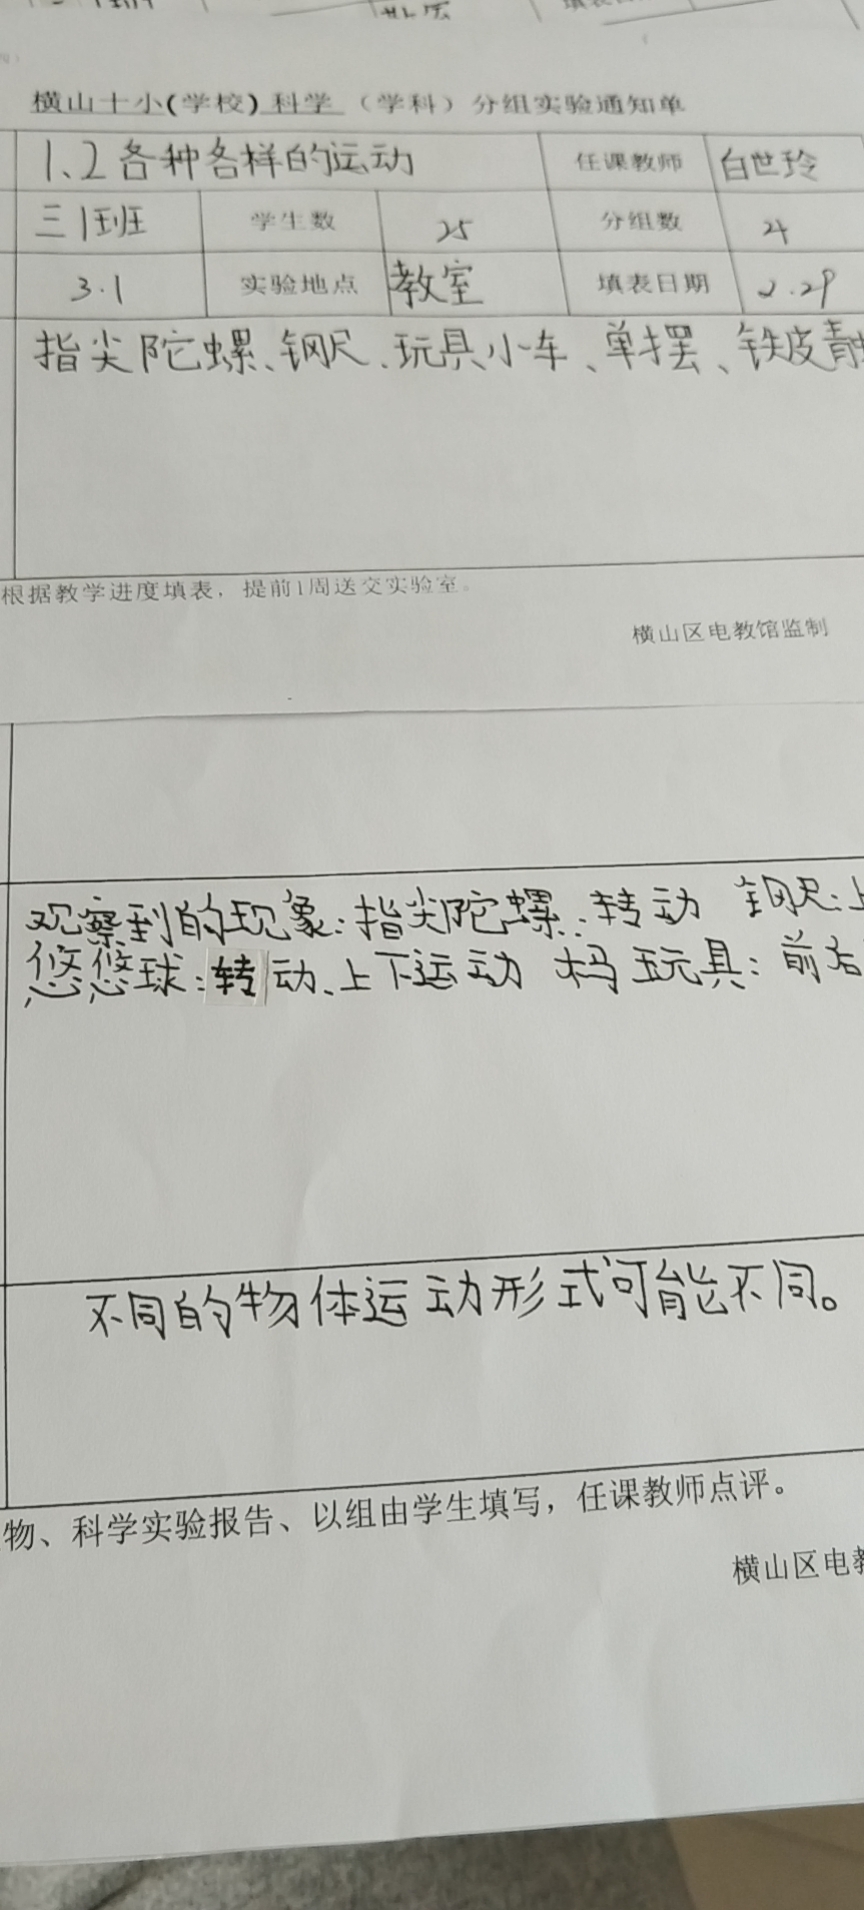 横山十小(学校)科学（学科）分组实验通知单
1、2各种各样的运动 任课教师 白世玲
三1班 学生数 25 分组数 4
3.1 实验地点 教室 填表日期 2.29
指尖陀螺、钢尺、玩具小车、单摆、铁皮青
根据教学进度填表，提前1周送交实验室。
横山区电教馆监制
观察到的现象:指尖陀螺:转动 钢尺:上
悠悠球:转动、上下运动 木马玩具:前后
不同的物体运动形式可能不同。
物、科学实验报告、以组由学生填写，任课教师点评。
横山区电教